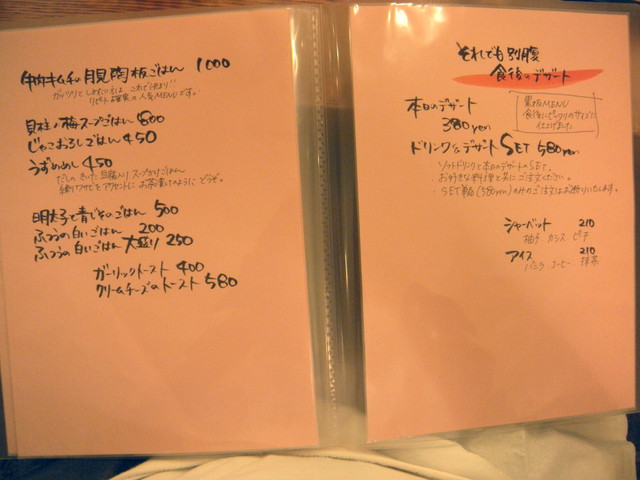 牛肉キムチの月見陶板ごはん 1000
ガッツリとしめたい方は これで決まり!!
リピート確実の人気MENUです。
貝柱と梅スープごはん 800
じゃこおろしごはん 450
うずめめし 450
だしのきいた豆腐入りスープかけごはん
練りワサビをアクセントに お茶漬けのように どうぞ。
明太子と青じそのごはん 500
ふつうの白いごはん 200
ふつうの白いごはん 大盛り 250
ガーリックトースト 400
クリームチーズのトースト 580
それでも別腹
食後のデザート
本日のデザート
380yen
黒板MENU
食後にピッタリのサイズに
仕上げました
ドリンク&デザートSET 580yen
・ソフトドリンクと本日のデザートのSET。
・お好きな料理と共にご注文ください。
・SET単品(580yen)のみのご注文はお断りいたします。
シャーベット 210
柚子 カシス ピーチ
アイス 210
バニラ コーヒー 抹茶